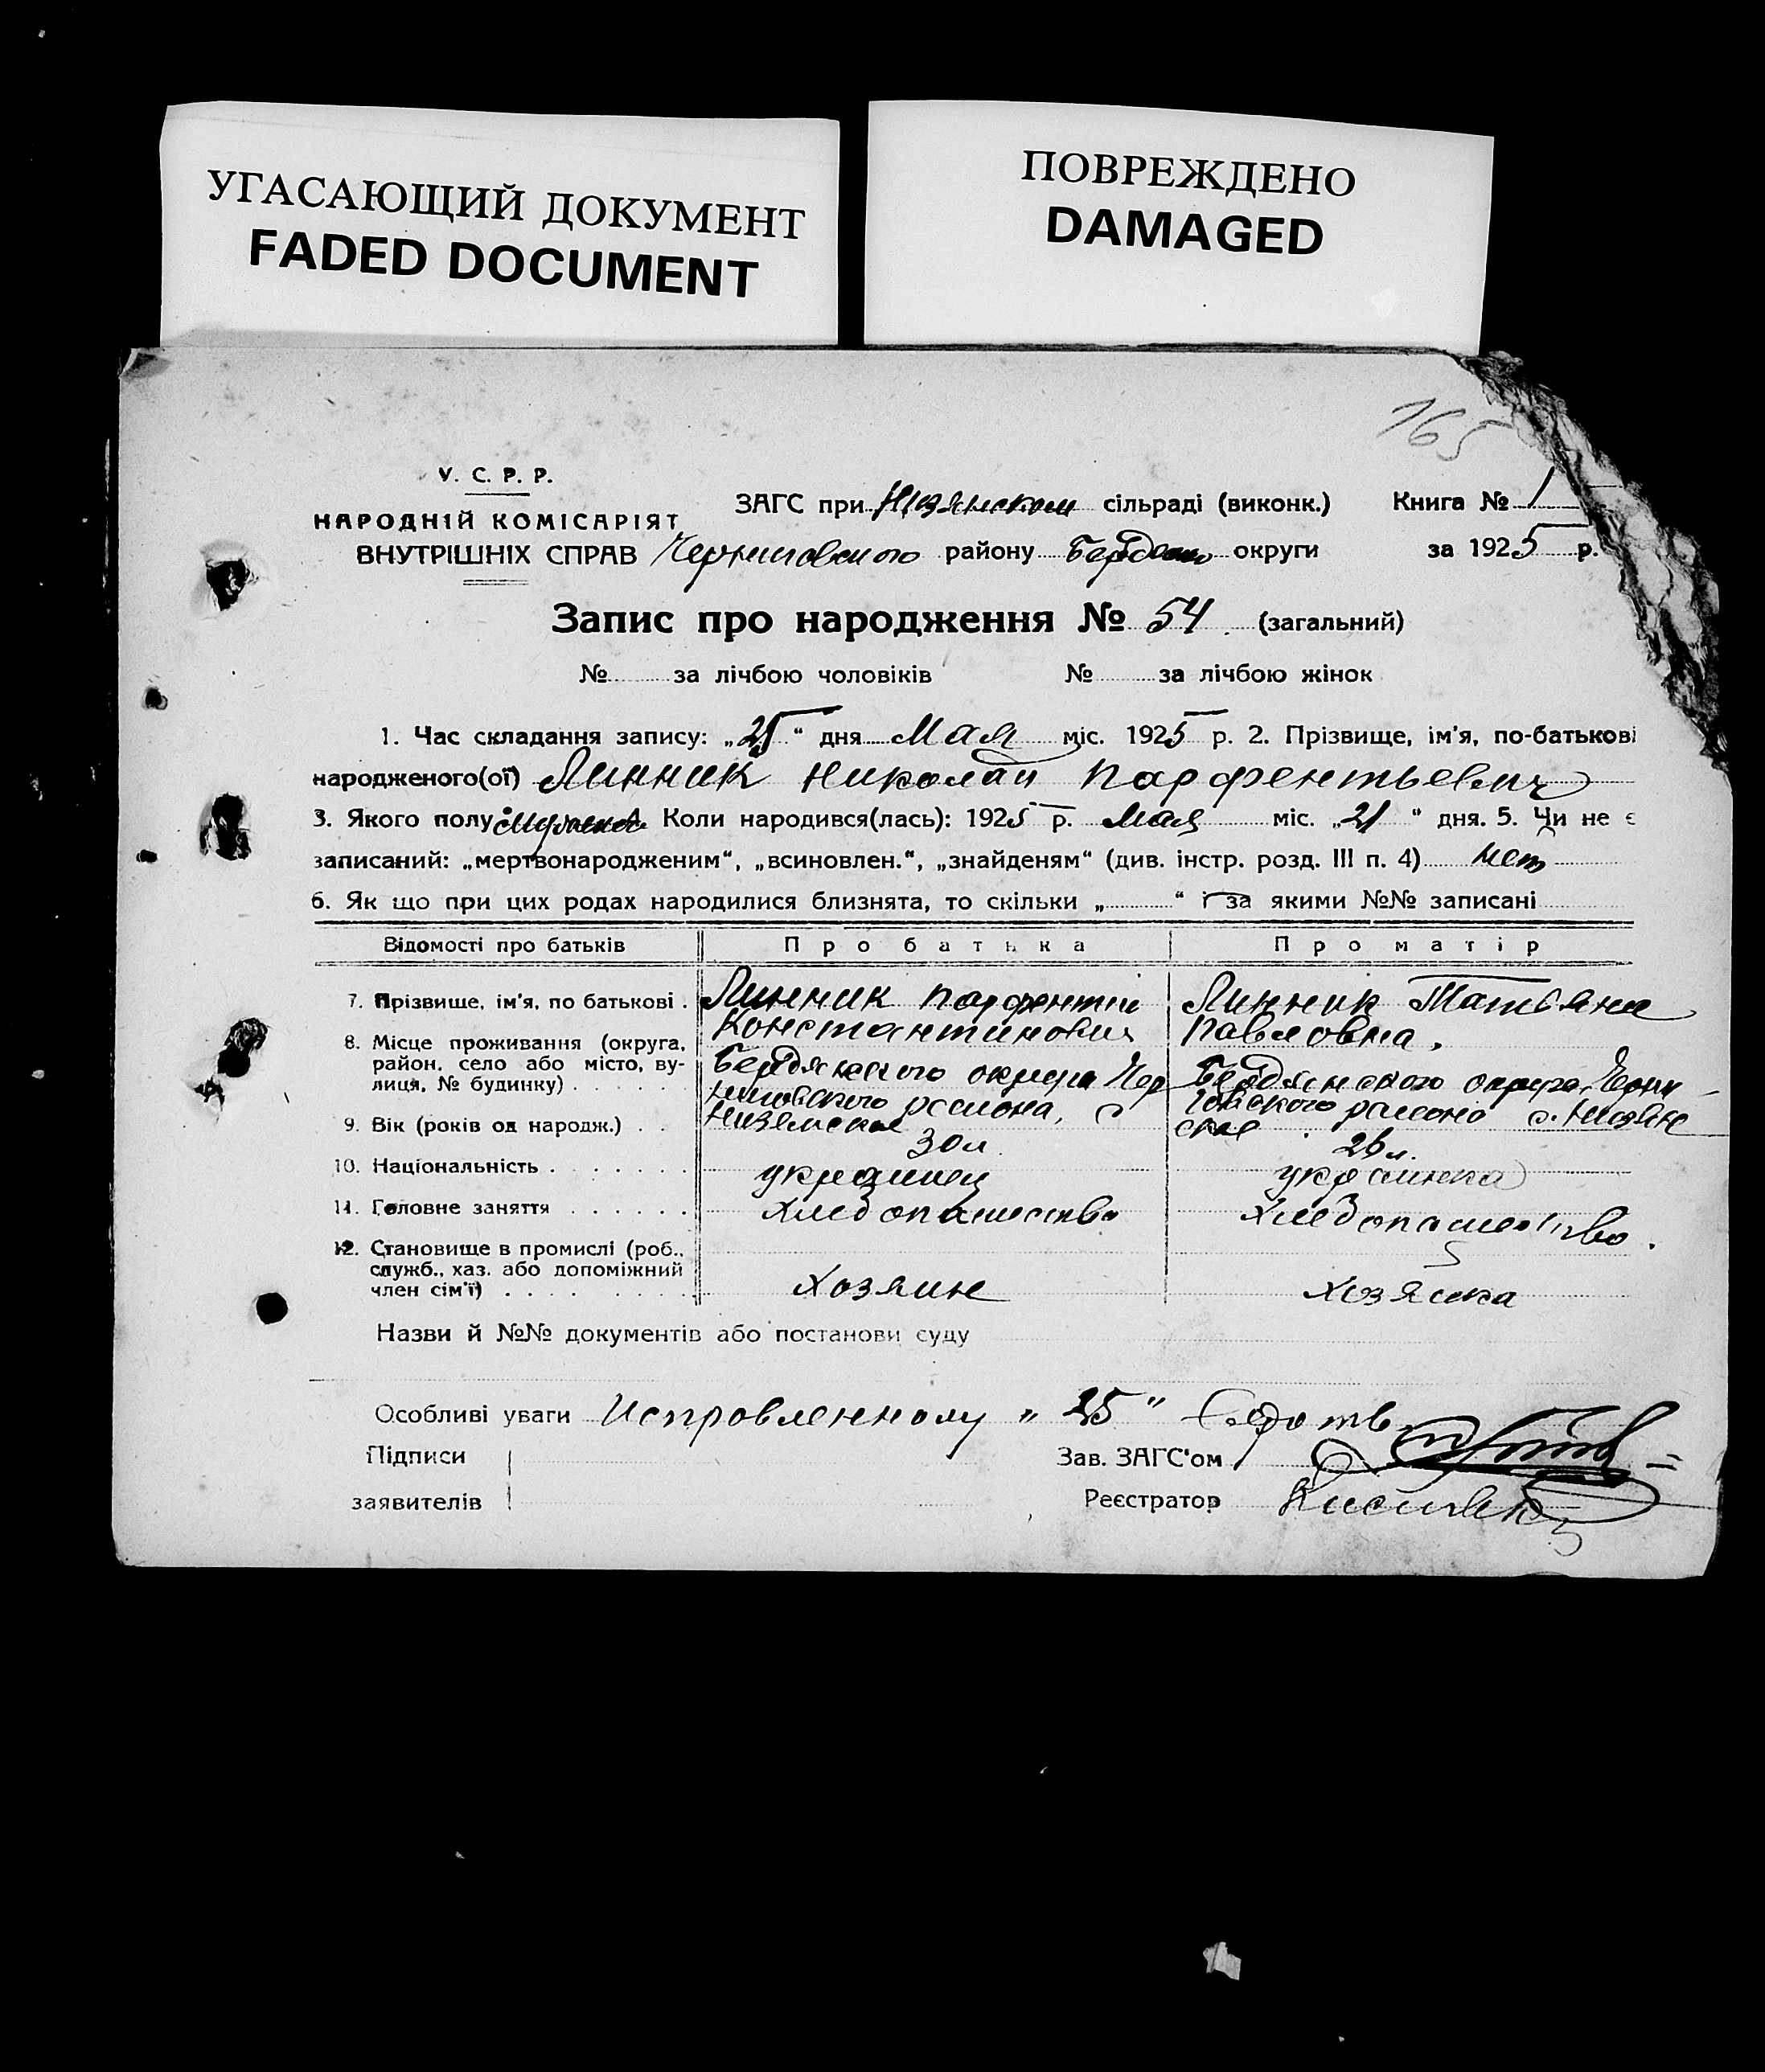 УГАСАЮЩИЙ ДОКУМЕНТ
FADED DOCUMENT
ПОВРЕЖДЕНО
DAMAGED
165
У. С. Р. Р.
НАРОДНІЙ КОМІСАРІЯТ
ВНУТРІШНІХ СПРАВ
ЗАГС при Низянском сільраді (виконк.) Книга № 1
Черниговского району Бердян округи за 1925 р.
Запис про народження № 54. (загальний)
№ за лічбою чоловіків № за лічбою жінок
1. Час складання запису: „25“ дня Мая міс. 1925 р. 2. Прізвище, ім'я, по-батькові
народженого(ої) Линник Николай Парфентьевич
3. Якого полу мужско 4. Коли народився(лась): 1925 р. Мая міс. „21“ дня. 5. Чи не є
записаний: „мертвонародженим“, „всиновлен.“, „знайденям“ (див. інстр. розд. III п. 4) нет
6. Як що при цих родах народилися близнята, то скільки „ “ і за якими №№ записані
Відомості про батьків Про батька Про матір
7. Прізвище, ім'я, по батькові . Линник Парфентий Линник Татьяна
Константинович Павловна.
8. Місце проживання (округа, район, село або місто, ву-
лиця, № будинку) . . . . .
Бердянского округа Чер
ниговского района, с
Низянское
Бердянского округа, Черни
говского района с. Низян
ское
9. Вік (років од народж.) . . 30 л. 26 л.
10. Національність . . . . . . . украинец украинка
11. Головне заняття . . . . . . хлебопашество хлебопашество.
12. Становище в промислі (роб.,
служб., хаз. або допоміжний
член сім'ї) . . . . . . . . . хозяин хозяйка
Назви й №№ документів або постанови суду
Особливі уваги Исправленному „ 25 “
Підписи Зав. ЗАГС'ом
заявителів Реєстратор